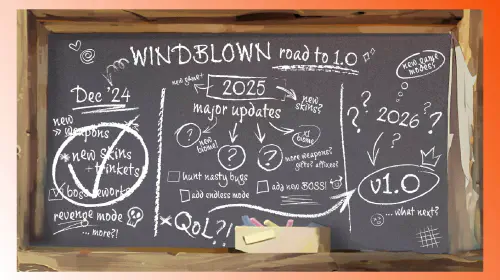 WINDBLOWN road to 1.0
Dec '24
new
>> weapons
* new skins
+ trinkets
boss reworks
revenge mode
... more?!
new game+
2025
major updates
new skins?
?
new biome!
?
?
x1 biome!
more weapons?
gifts? affixes?
hunt nasty bugs
add endless mode
add new BOSS!
x QoL?!
new game modes?
? ? 2026 ? ?
v1.0
... what next?